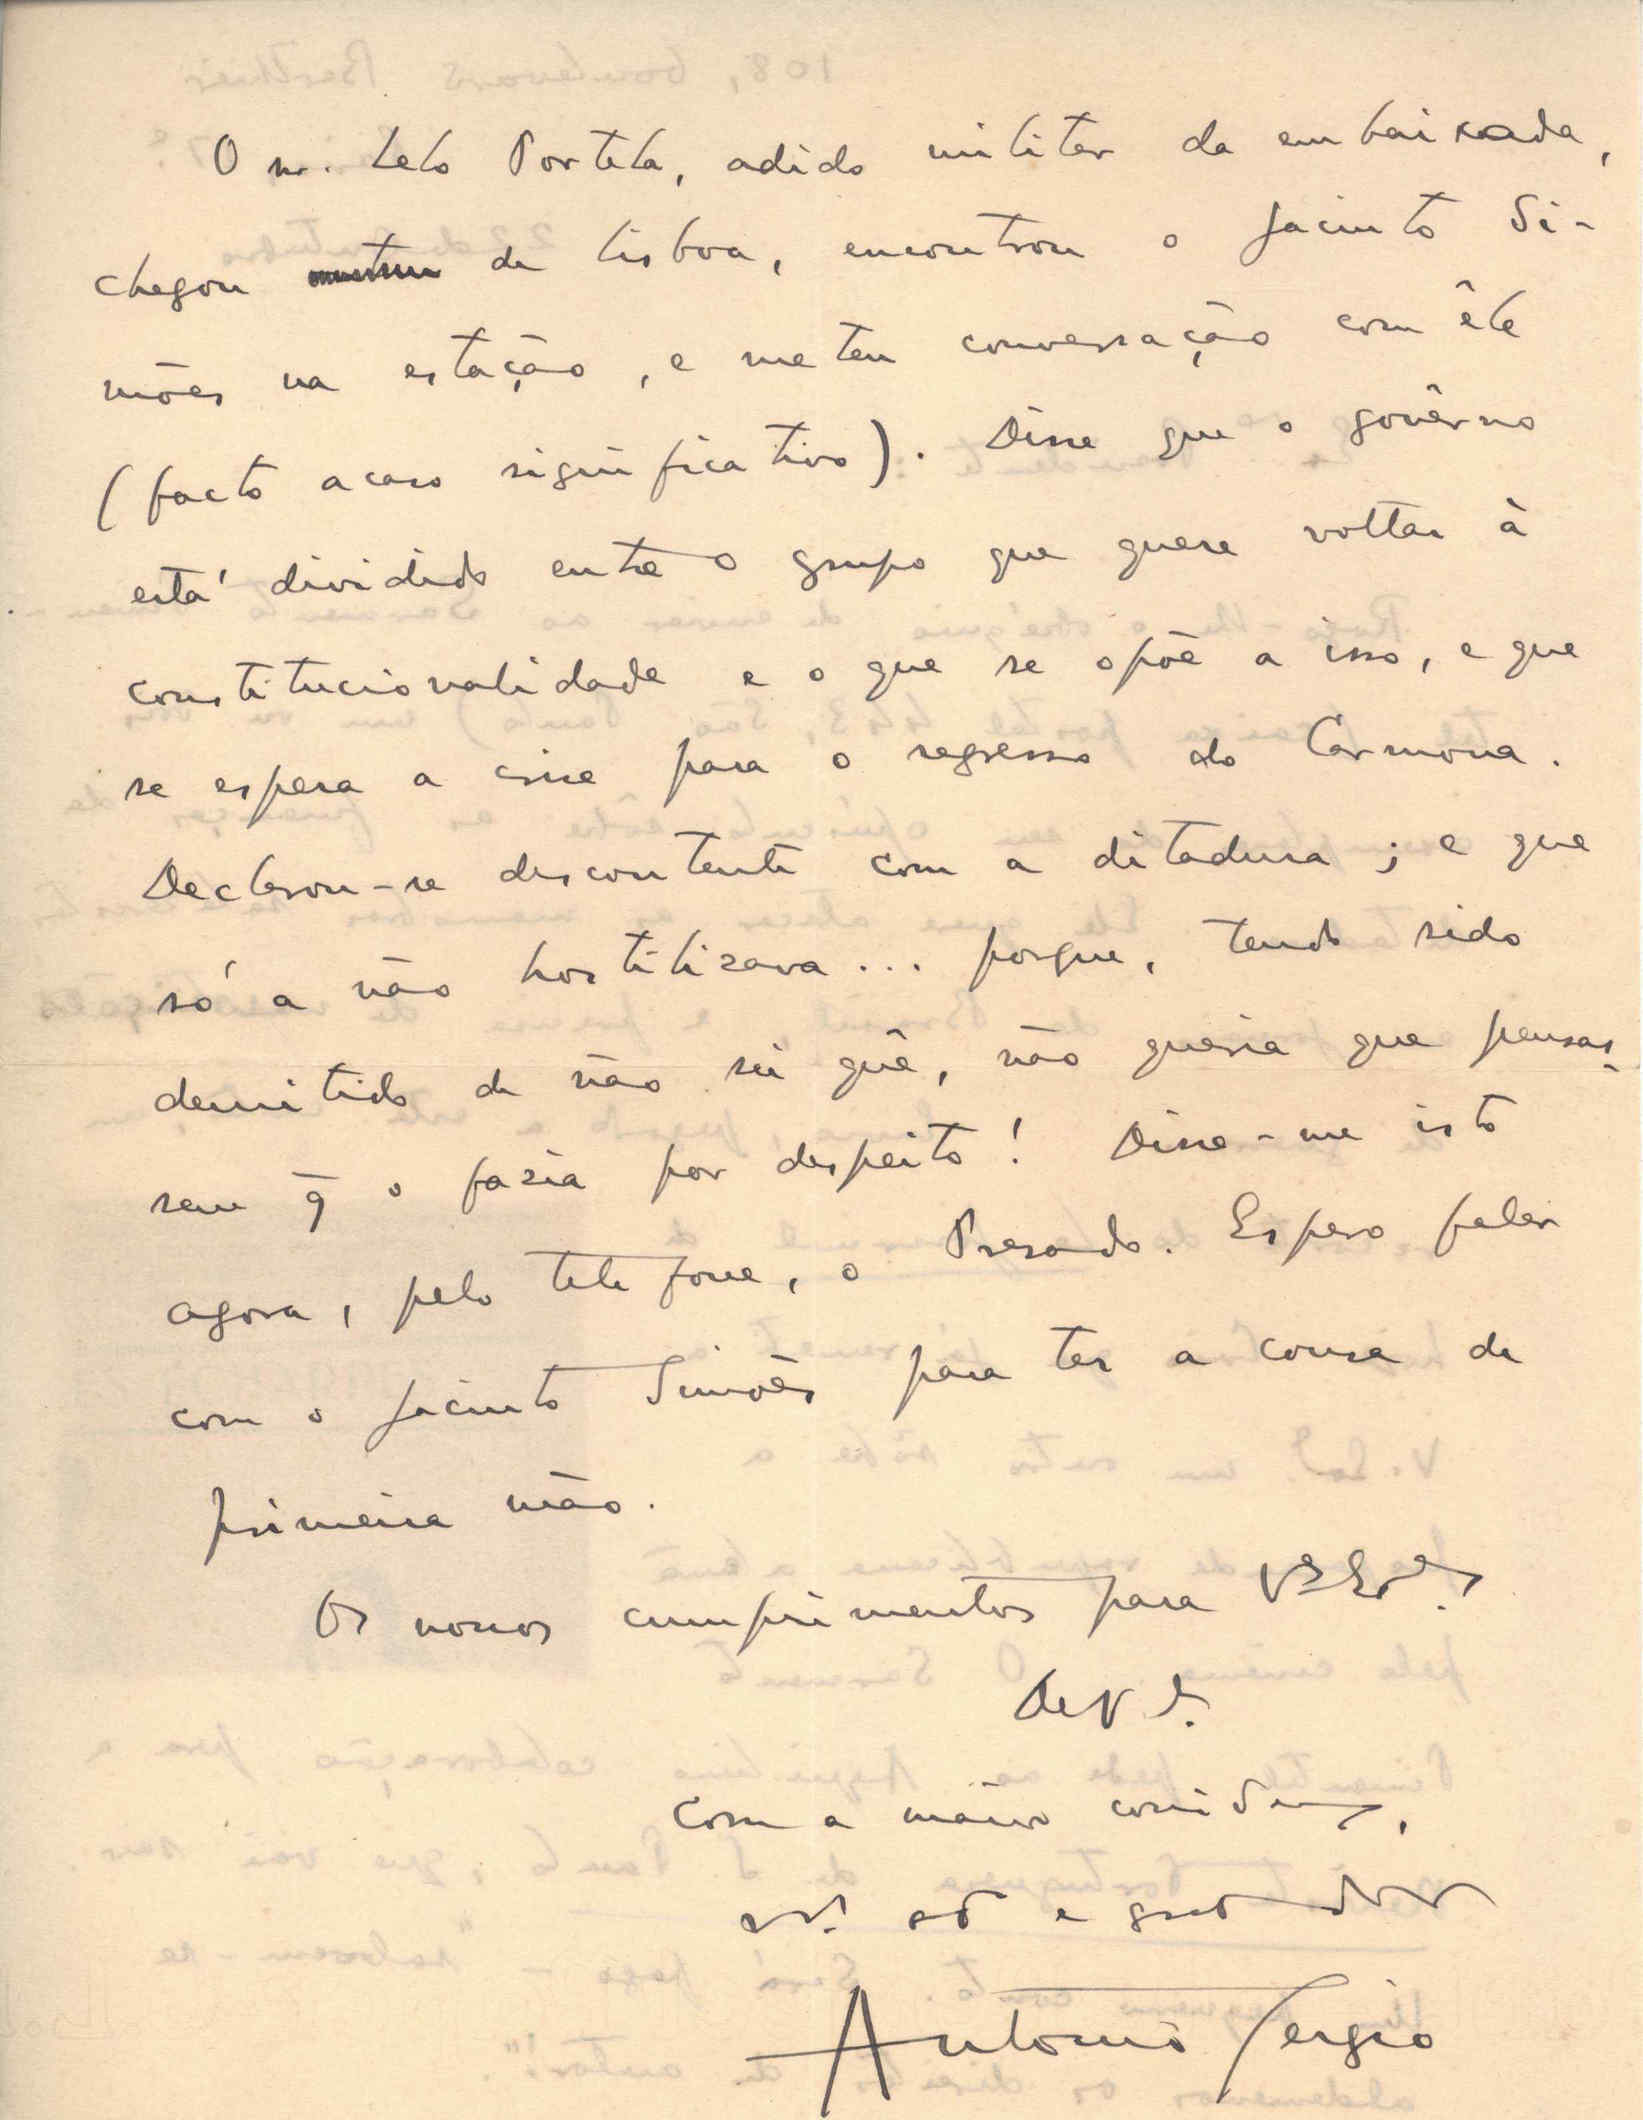 O sr. Lelo Portela, adido militar da embaixada,
chegou de Lisboa, encontrou o Jacinto Si-
mões na estação, e meteu conversação com êle
(facto acaso significativo). Disse que o govêrno
está dividido entre o grupo que quere voltar à
constitucionalidade e o que se opõe a isso, e que
se espera a crise para o regresso do Carmona.
Declarou-se descontente com a ditadura; e que
só a não hostilizava... porque, tendo sido
demitido de não sei quê, não queria que pensas-
sem q̄ o fazia por despeito! Disse-me isto
agora, pelo telefone, o Presado. Espero falar
com o Jacinto Simões para ter a cousa de
primeira mão.
Os nossos cumprimentos para V.as Ex.as
De V. E.
com a maior
e
António Sérgio